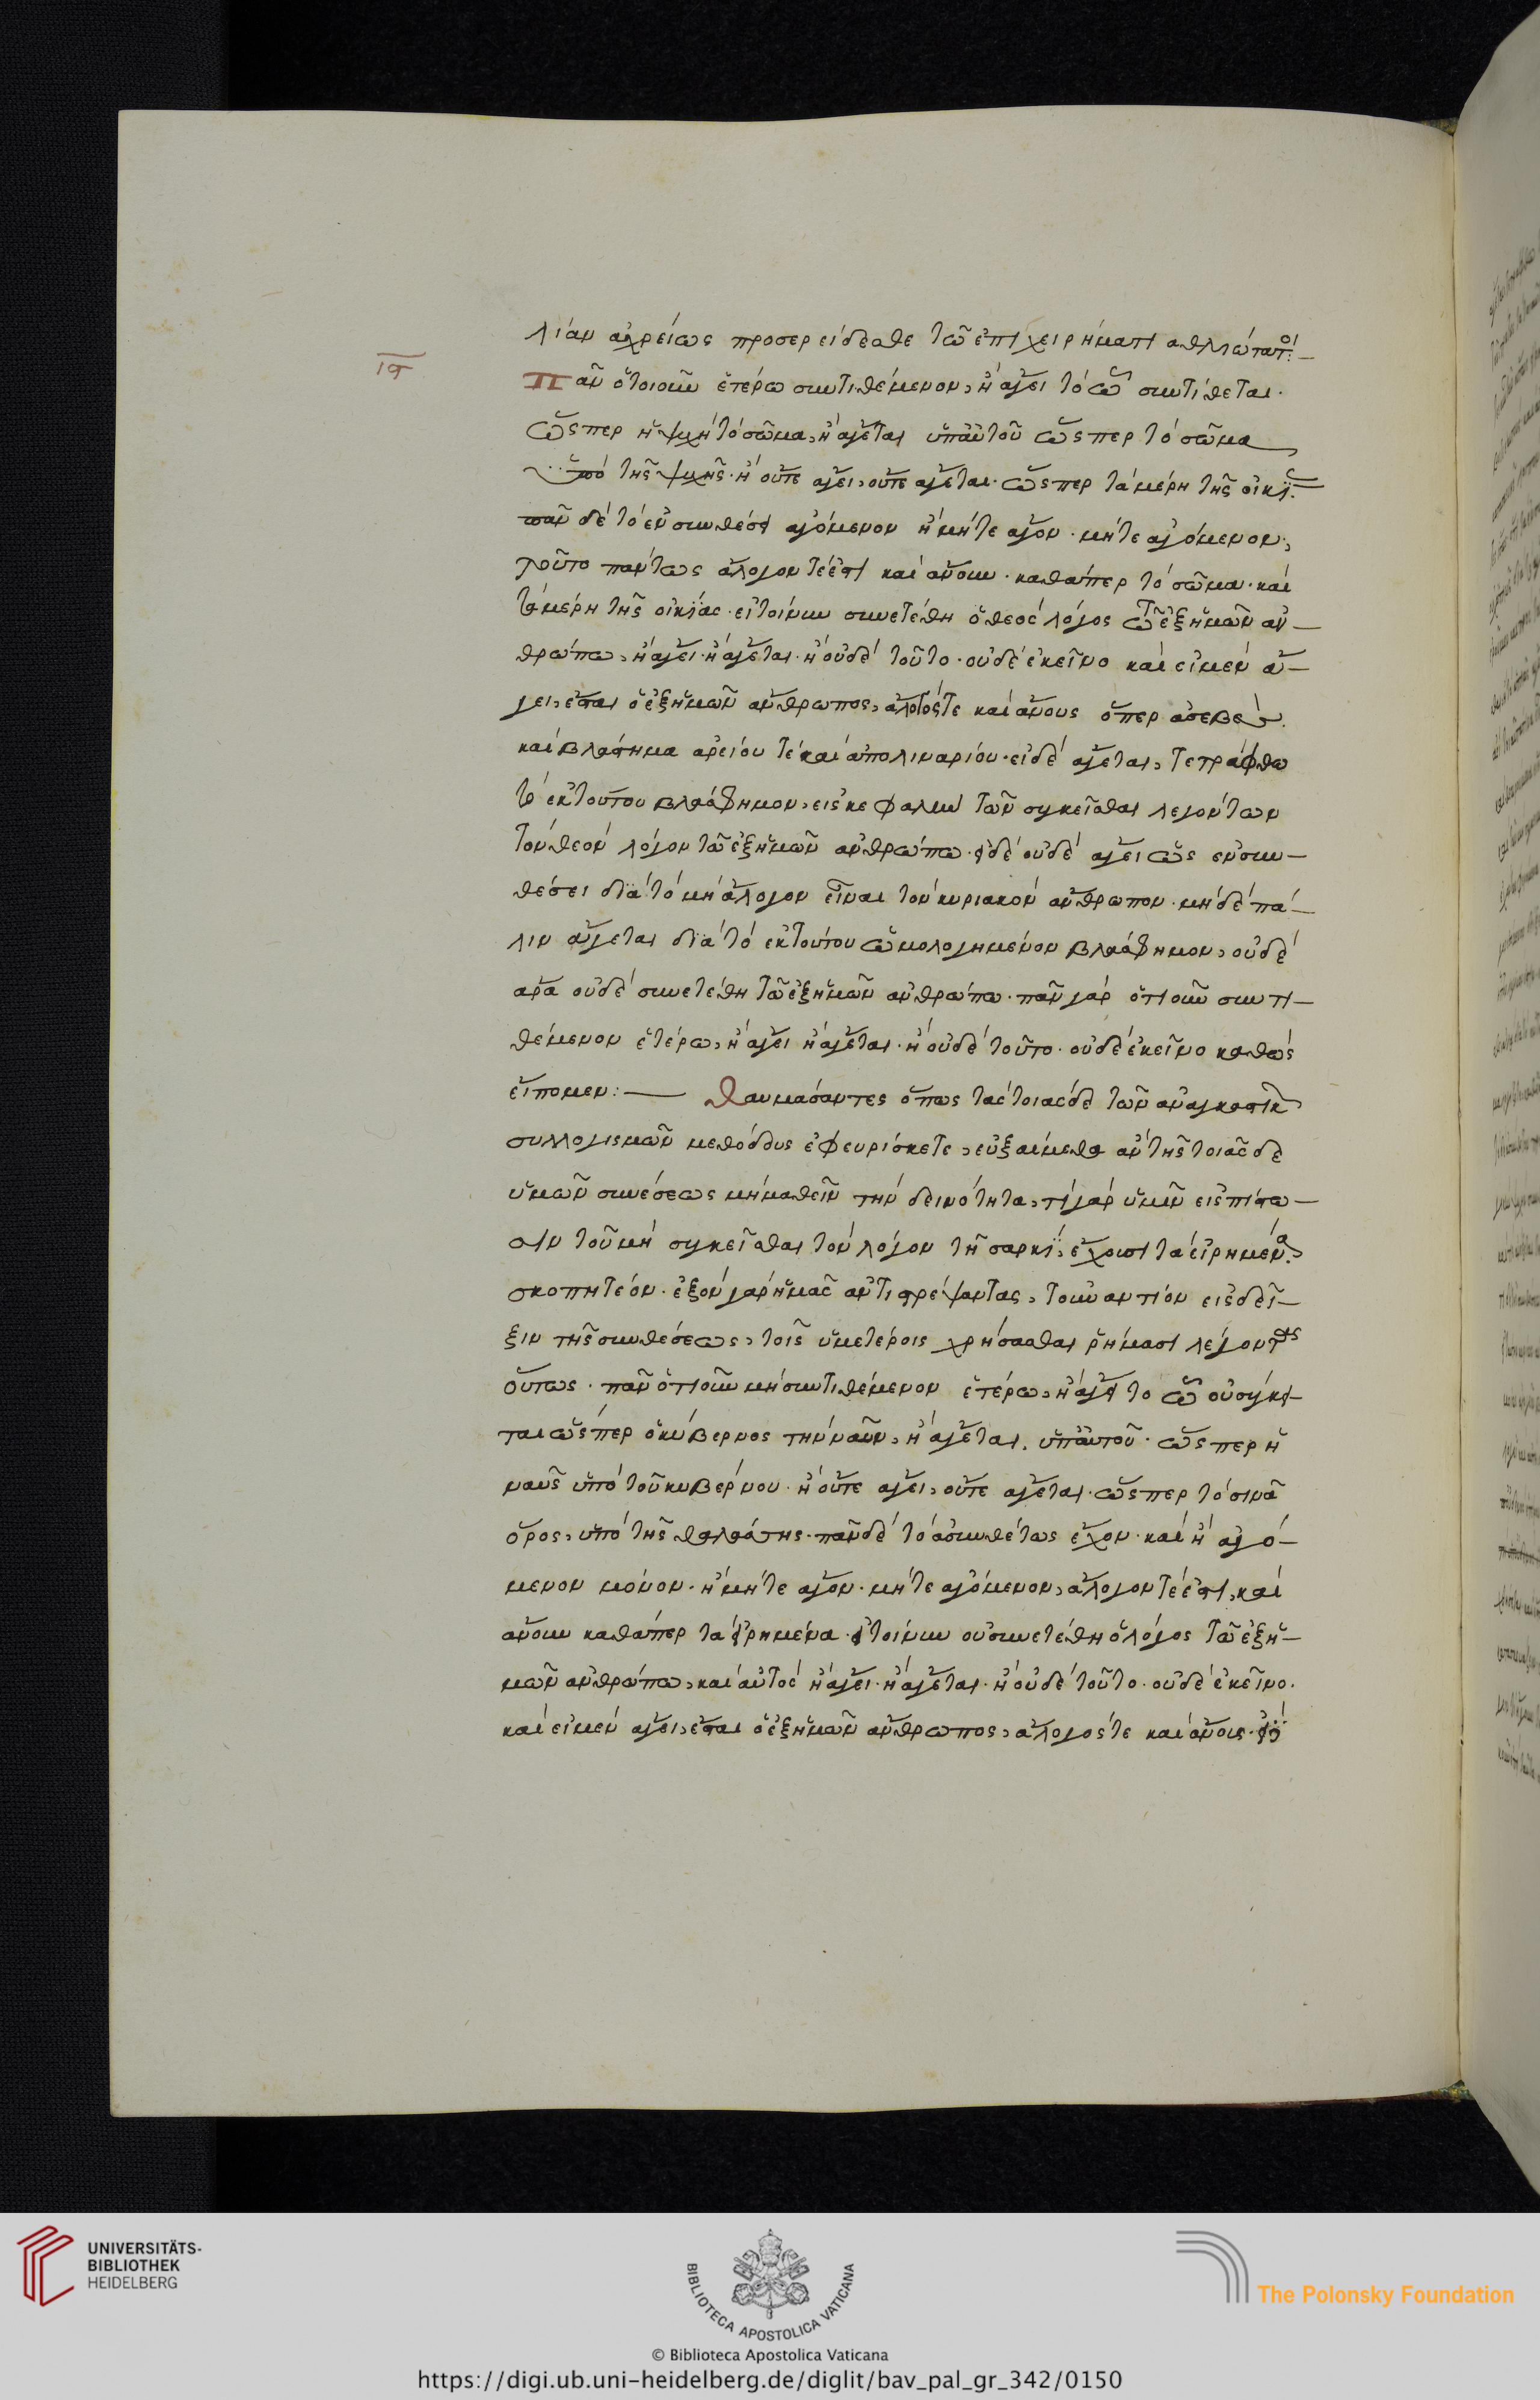 λίαν ἀχρείως προσερείδεσθε τῶ ἐπιχειρήματι ἀθλιώτατοι:—
ιϛ
Πᾶν ὁτοιοῦν ἑτέρω συντιθέμενον, ἢ ἄγει τὸ ὧ συντίθεται.
ὥσπερ ἡ ψυχὴ τὸ σῶμα, ἢ ἄγεται ὑπ᾽ αὐτοῦ ὥσπερ τὸ σῶμα
ὑπὸ τῆς ψυχῆς. ἢ οὔτε ἄγει, οὔτε ἄγεται. ὥσπερ τὰ μέρη τῆς οἰκί
πᾶν δὲ τὸ ἐν συνθέσει ἀγόμενον ἢ μήτε ἄγον. μήτε ἀγόμενον,
τοῦτο πάντως ἄλογον τέ ἐστι καὶ ἄνουν. καθάπερ τὸ σῶμα. καὶ
τὰ μέρη τῆς οἰκίας. εἰ τοίνυν συνετέθη ὁ θεὸς λόγος τῶ ἐξ ἡμῶν ἀν—
θρώπω, ἢ ἄγει. ἢ ἄγεται. ἢ οὐδὲ τοῦτο. οὐδὲ ἐκεῖνο καὶ εἰ μὲν ἄ—
γει, ἔσται ὁ ἐξ ἡμῶν ἄνθρωπος, ἄλογός τε καὶ ἄνους ὅπερ ἀσεβὲς.
καὶ βλάσφημα ἀρείου τὲ καὶ ἀπολιναρίου. εἰ δὲ ἄγεται, τετράφθω
τὸ ἐκ τούτου βλάσφημον, εἰς κεφαλὴν τῶν συγκεῖσθαι λεγόντων
τὸν θεὸν λόγον τῶ ἐξ ἡμῶν ἀνθρώπω. εἰ δὲ οὐδὲ ἄγει ὡς ἐν συν—
θέσει διὰ τὸ μὴ ἄλογον εἶναι τὸν κυριακὸν ἄνθρωπον. μὴ δὲ πά—
λιν ἄγεται διὰ τὸ ἐκ τούτου ὡμολογημένον βλάσφημον, οὐδὲ
ἄρα οὐδὲ συνετέθη τῶ ἐξ ἡμῶν ἀνθρώπω. πᾶν γὰρ ὁτιοῦν συντι—
θέμενον ἑτέρω, ἢ ἄγει ἢ ἄγεται. ἢ οὐδὲ τοῦτο. οὐδὲ ἐκεῖνο καθὼς
εἴπομεν:— Θαυμάσαντες ὅπως τὰς τοιάσδε τῶν ἀναγκαστικ
συλλογισμῶν μεθόδους ἐφευρίσκετε, εὐξαίμεθα ἂν τῆς τοιᾶσδε
ὑμῶν συνέσεως μὴ μαθεῖν τὴν δεινότητα, τί γὰρ ὑμῖν εἰς πίστω—
σιν τοῦ μὴ συγκεῖσθαι τὸν λόγον τῆ σαρκὶ, ἔχουσι τὰ εἰρημένα
σκοπητέον. ἐξὸν γὰρ ἡμᾶς ἀντιστρέψαντας, τοὐναντίον εἰς δεῖ—
ξιν τῆς συνθέσεως, τοῖς ὑμετέροις χρήσασθαι ῥήμασι λέγοντας
οὕτως. πᾶν ὁτιοῦν μὴ συντιθέμενον ἑτέρω, ἢ ἄγει τὸ ὧ οὐ σύγκει—
ται ὥσπερ ὁ κύβερνος τὴν ναῦν, ἢ ἄγεται. ὑπ᾽ αὐτοῦ. ὥσπερ ἡ
ναῦς ὑπὸ τοῦ κυβέρνου. ἢ οὔτε ἄγει, οὔτε ἄγεται. ὥσπερ τὸ σινᾶ
ὄρος, ὑπὸ τῆς θαλάσσης. πᾶν δὲ τὸ ἀσυνθέτως ἔχον. καὶ ἢ ἀγό—
μενον μόνον. ἢ μήτε ἄγον. μήτε ἀγόμενον, ἄλογον τέ ἐστι, καὶ
ἄνουν καθάπερ τὰ εἰρημένα. εἰ τοίνυν οὐ συνετέθη ὁ λόγος τῶ ἐξ ἡ—
μῶν ἀνθρώπω, καὶ αὐτὸς ἢ ἄγει. ἢ ἄγεται. ἢ οὐδὲ τοῦτο. οὐδὲ ἐκεῖνο.
καὶ εἰ μὲν ἄγει, ἔσται ὁ ἐξ ἡμῶν ἄνθρωπος, ἄλογός τε καὶ ἄνους.
UNIVERSITÄTS-
BIBLIOTHEK
HEIDELBERG
BIBLIOTECA APOSTOLICA VATICANA
The Polonsky Foundation
© Biblioteca Apostolica Vaticana
https://digi.ub.uni-heidelberg.de/diglit/bav_pal_gr_342/0150